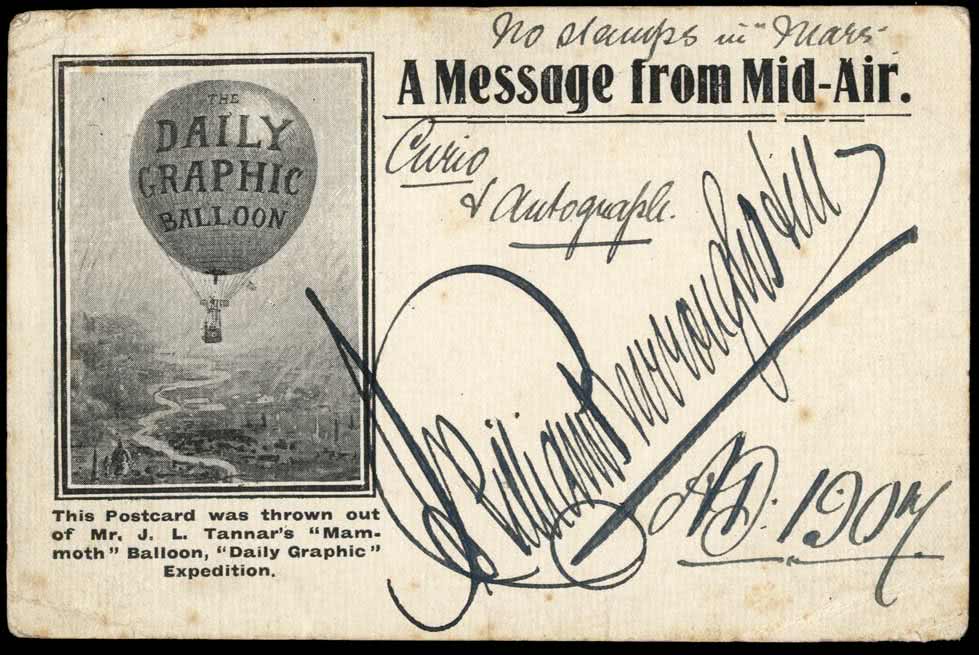 No stamps in "Mars"
A Message from Mid-Air.
Curio
& Autograph.
THE
DAILY
GRAPHIC
BALLOON
William Burroughs Hill
A.D. 1907
This Postcard was thrown out
of Mr. J. L. Tannar's "Mam-
moth" Balloon, "Daily Graphic"
Expedition.